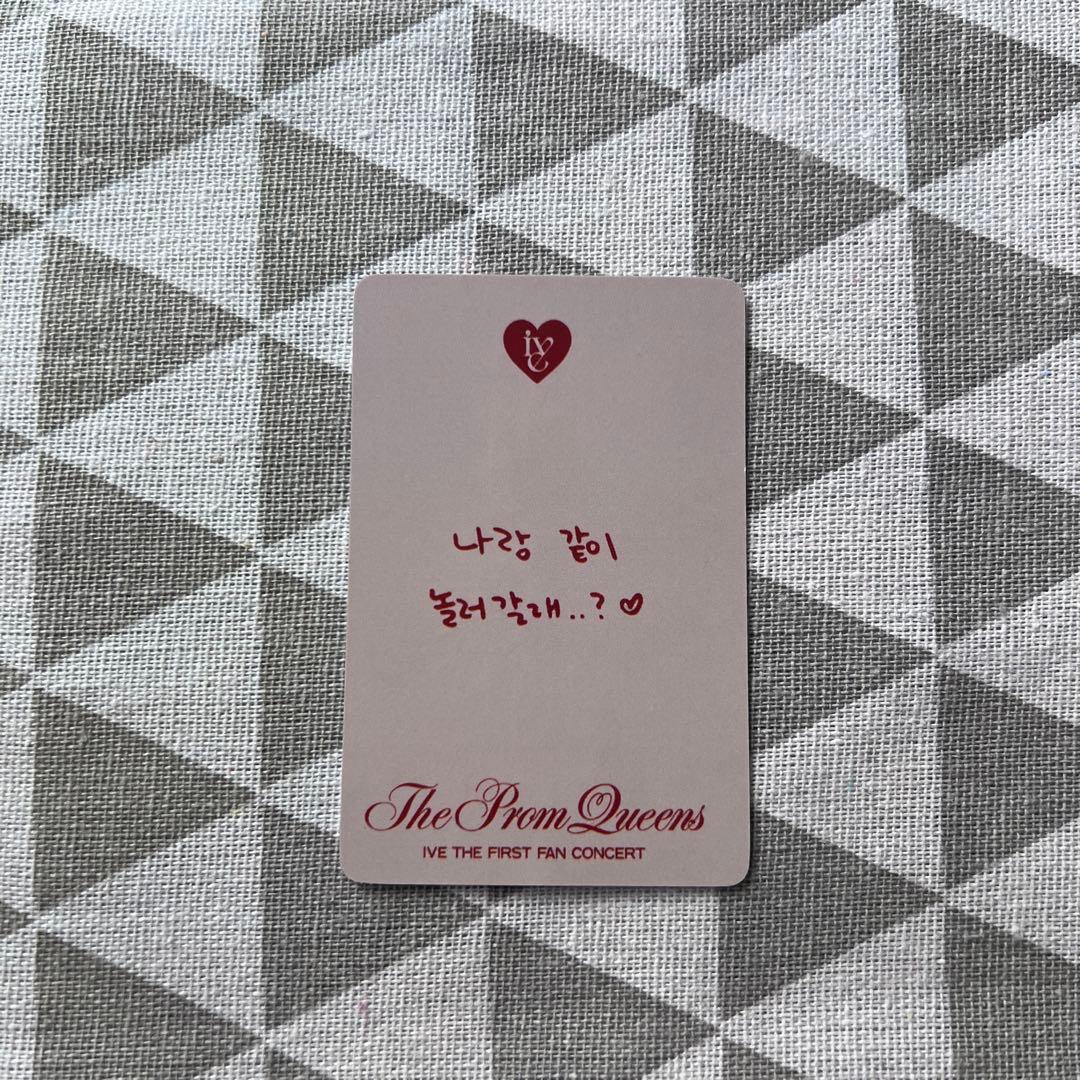 ive
나랑 같이
놀러갈래..? ♡
The Prom Queens
IVE THE FIRST FAN CONCERT